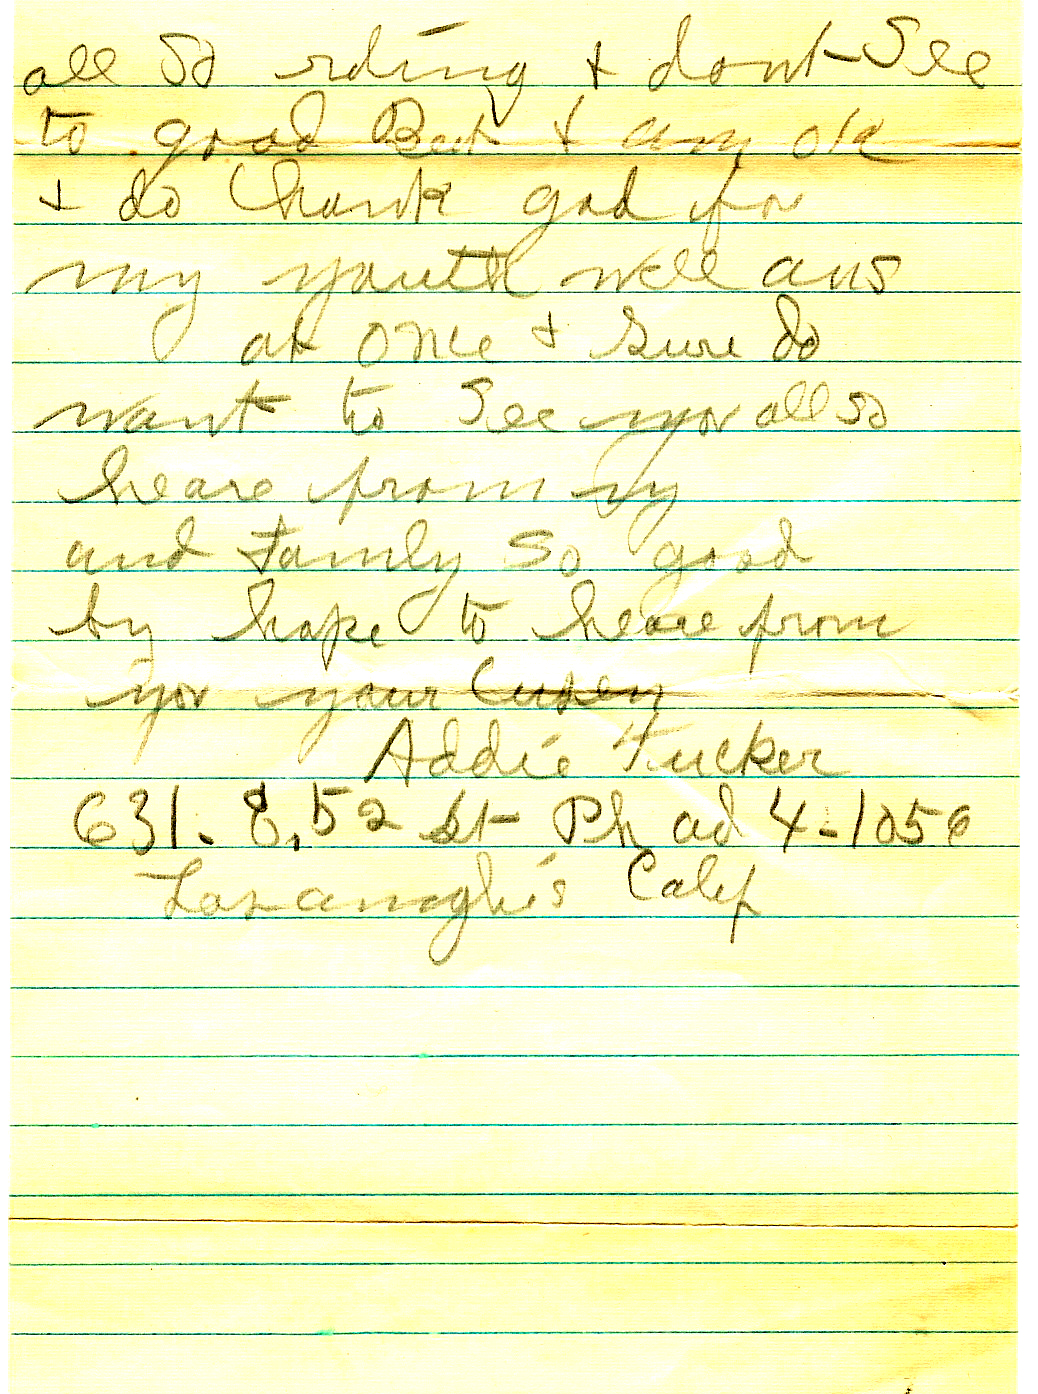 all So riding + dont See
to good But I am ok
+ do thank god for
my youth well ans
at once + Sure do
want to See yor all so
heare from yy
and Famly So good
by hope to heare from
yor your Cusen
Addie Tucker
631. E. 52 St Ph ad 4-1056
Losanghis Calif